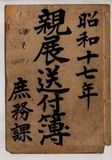 昭和十七年
親展送付簿
庶務課